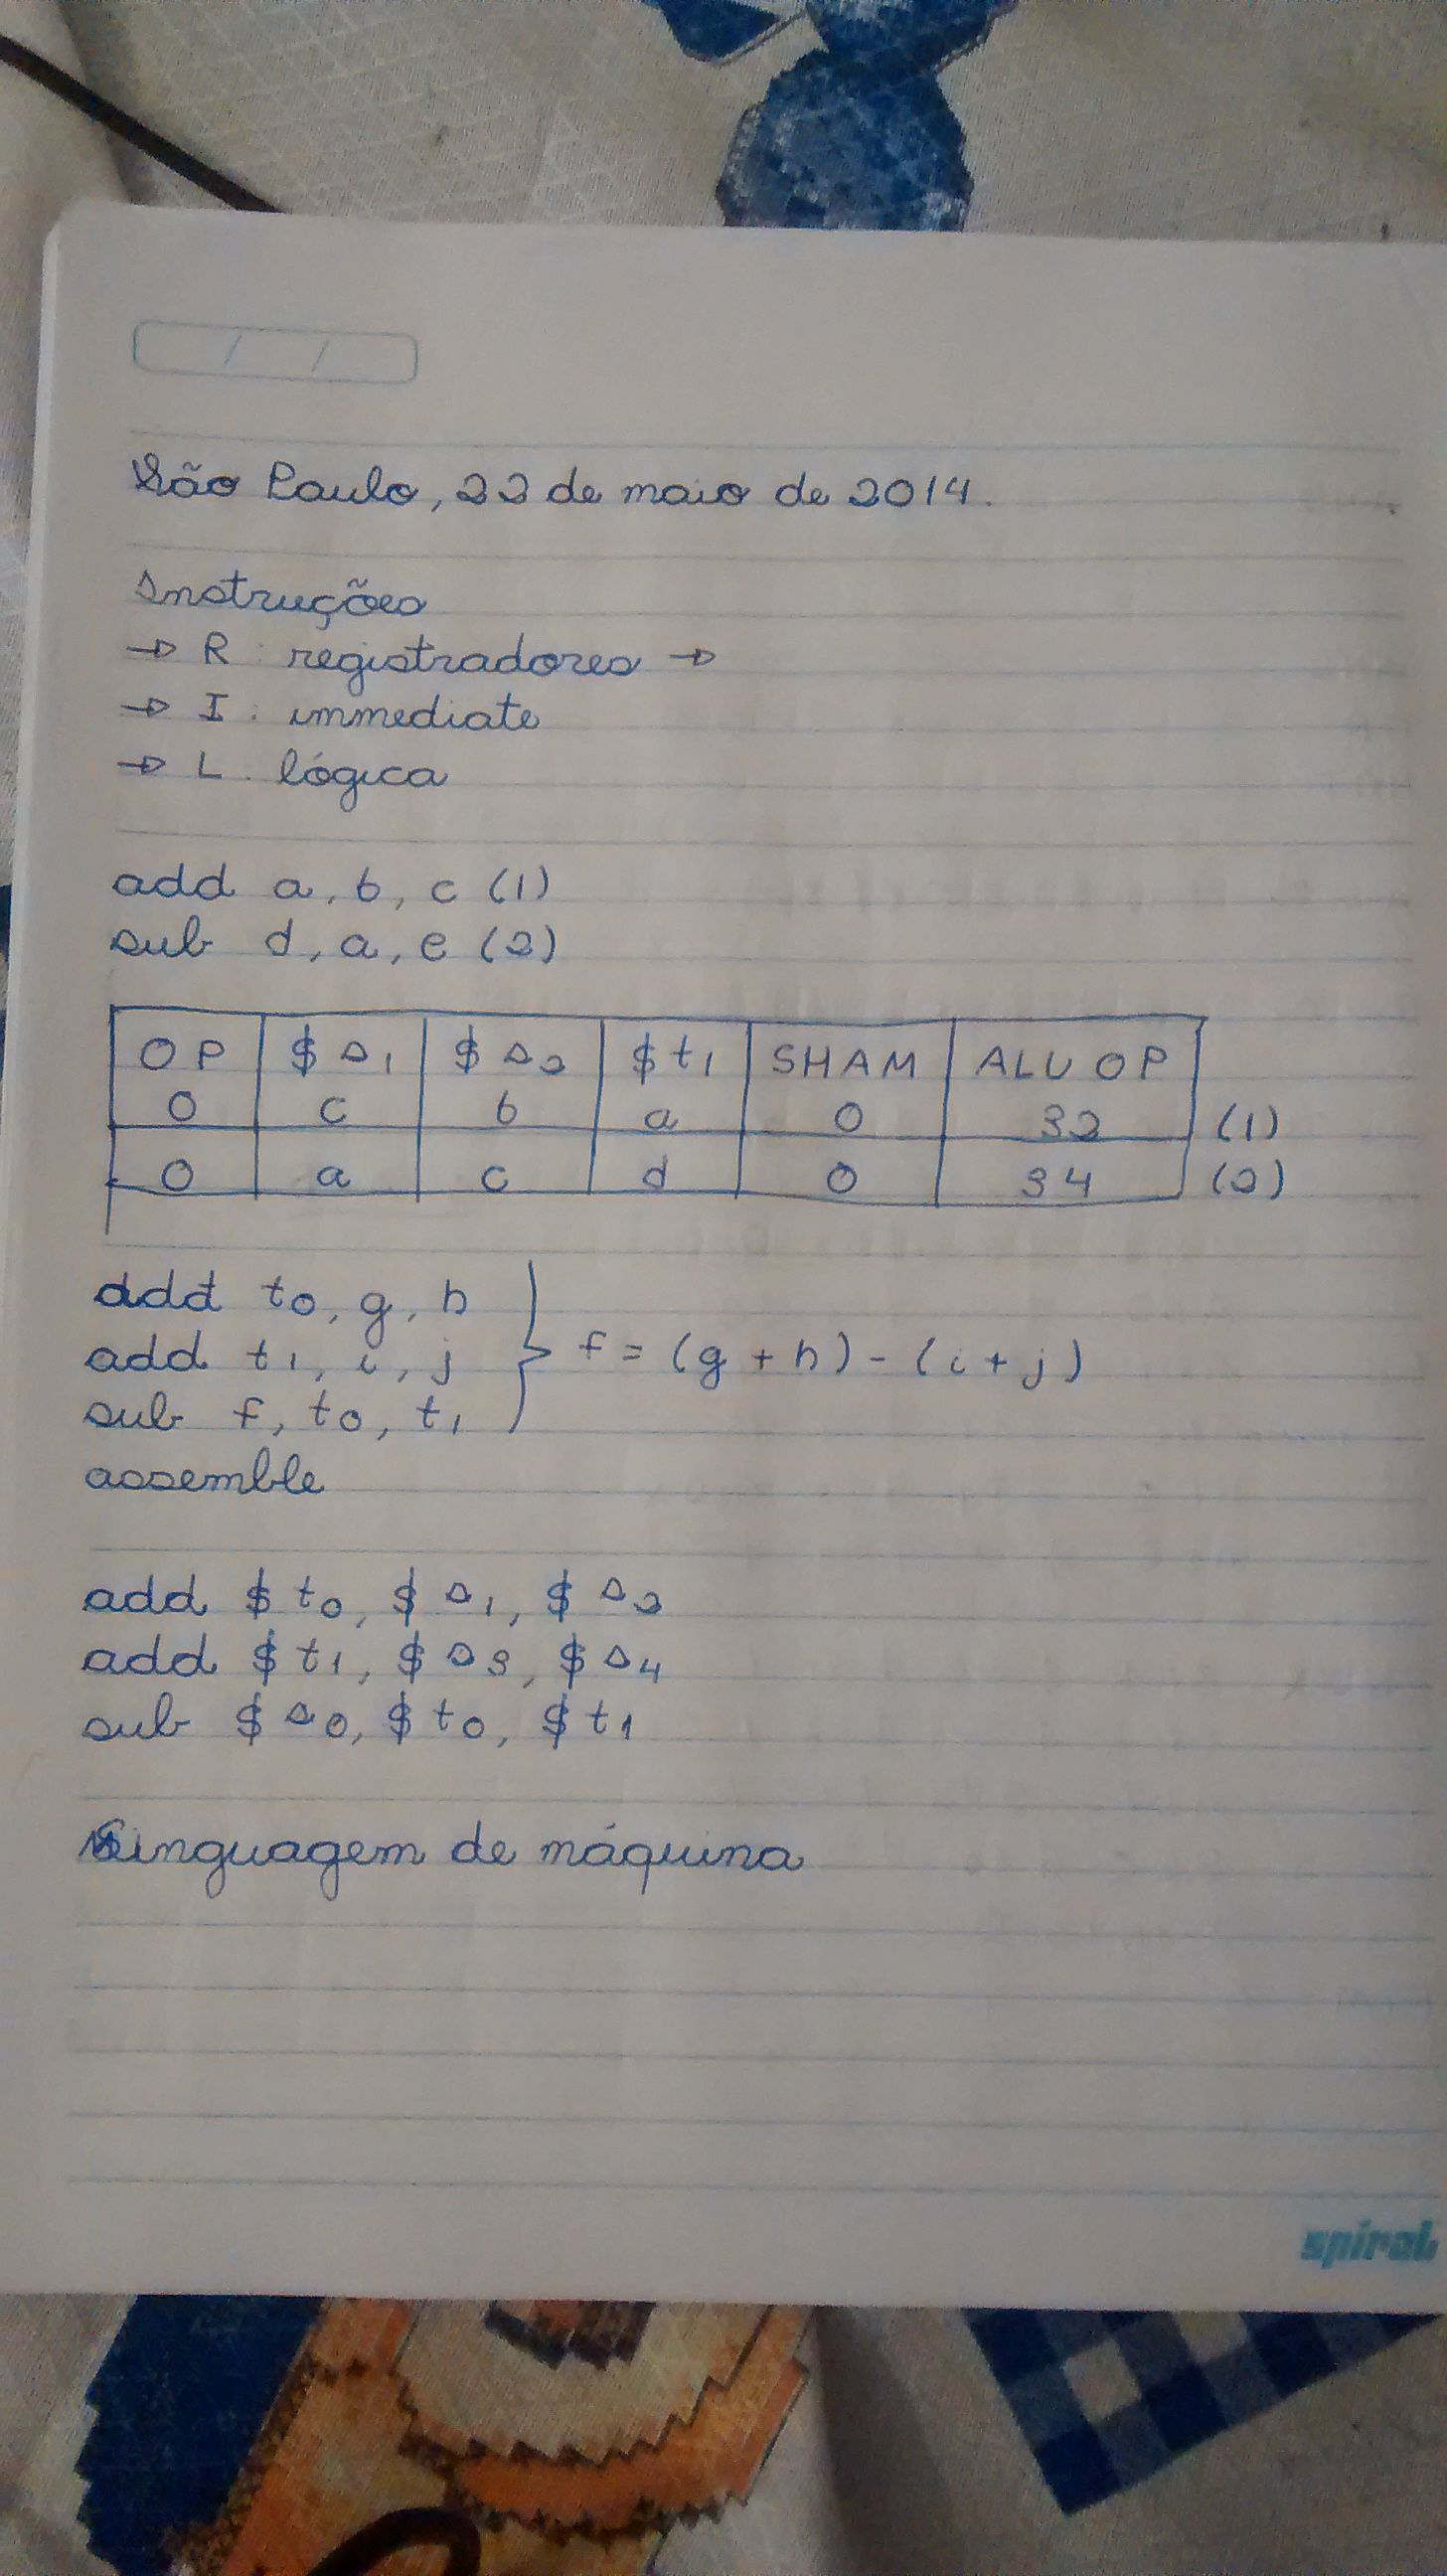 / /
São Paulo, 22 de maio de 2014.
Instruções
→ R: registradores →
→ I: immediate
→ L: lógica
add a, b, c (1)
sub d, a, e (2)
OP $s1 $s2 $t1 SHAM ALU OP
0 c b a 0 32 (1)
0 a c d 0 34 (2)
add t0, g, h
add t1, i, j } f = (g + h) - (i + j)
sub f, t0, t1
assemble
add $t0, $s1, $s2
add $t1, $s3, $s4
sub $s0, $t0, $t1
Linguagem de máquina
spiral